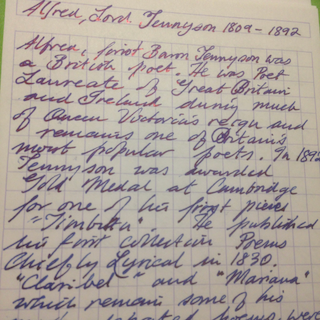 Alfred, Lord Tennyson 1809 - 1892
Alfred, first Baron Tennyson was
a British poet. He was Poet
Laureate of Great Britain
and Ireland during much
of Queen Victoria's reign and
remains one of Britain's
most popular poets. In 1892
Tennyson was awarded
Gold Medal at Cambridge
for one of his first pieces
"Timbuktu" He published
his first collection Poems
Chiefly Lyrical in 1830.
"Claribel" and "Mariana"
which remain some of his
poems were